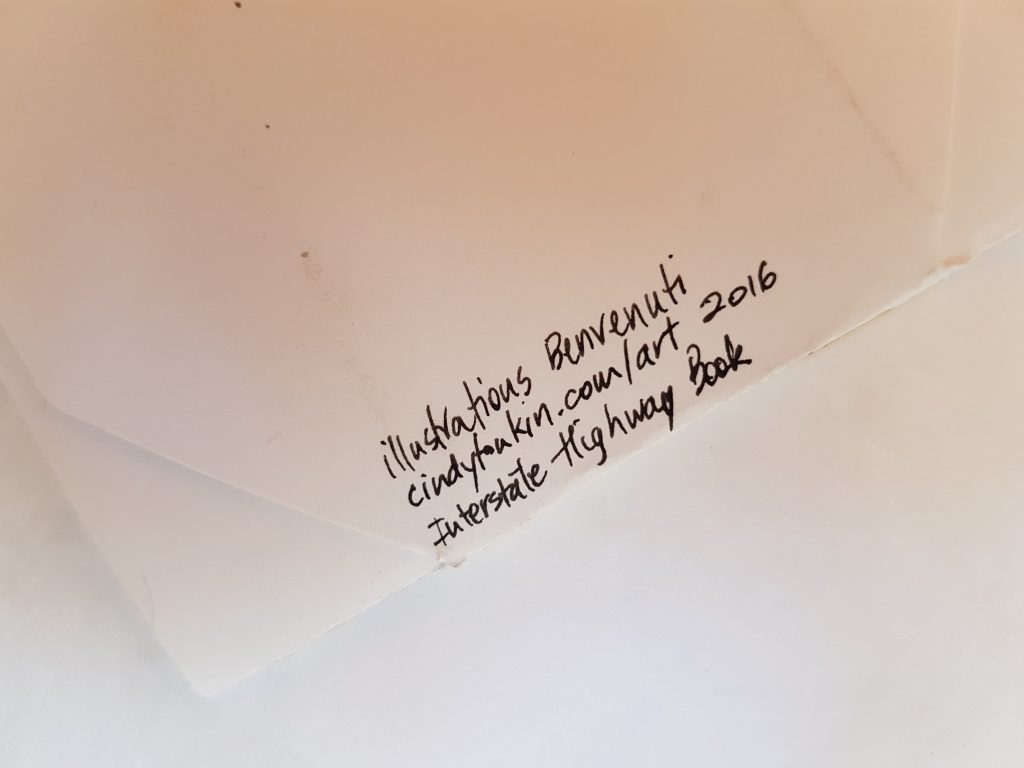 illustrations Benvenuti
cindytonkin.com/art 2016
Interstate Highway Book